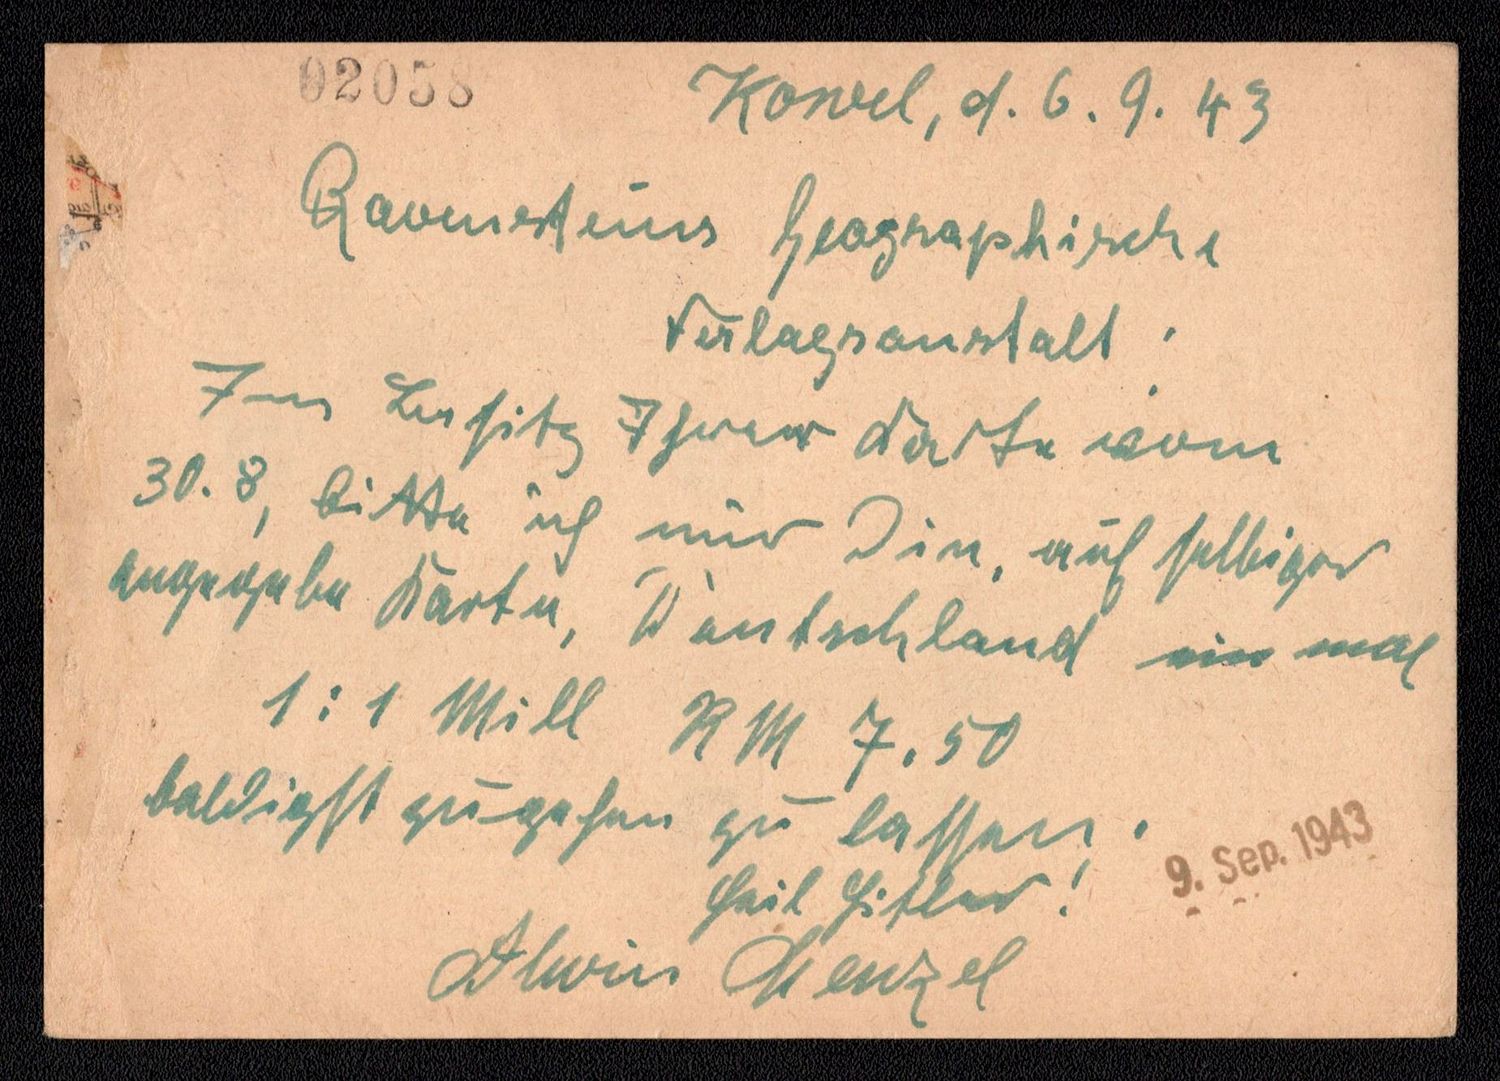 02058
Kowel, d. 6. 9. 43
Ravensteins Geographische
Verlagsanstalt.
Im Besitz Ihrer Karte vom
30. 8, bitte ich mir Die, auf selbiger
angegebe Karte, Deutschland ein mal
1 : 1 Mill RM 7.50
baldigst zugehen zu lassen.
Heil Hitler!
Alwin Menzel
9. Sep. 1943